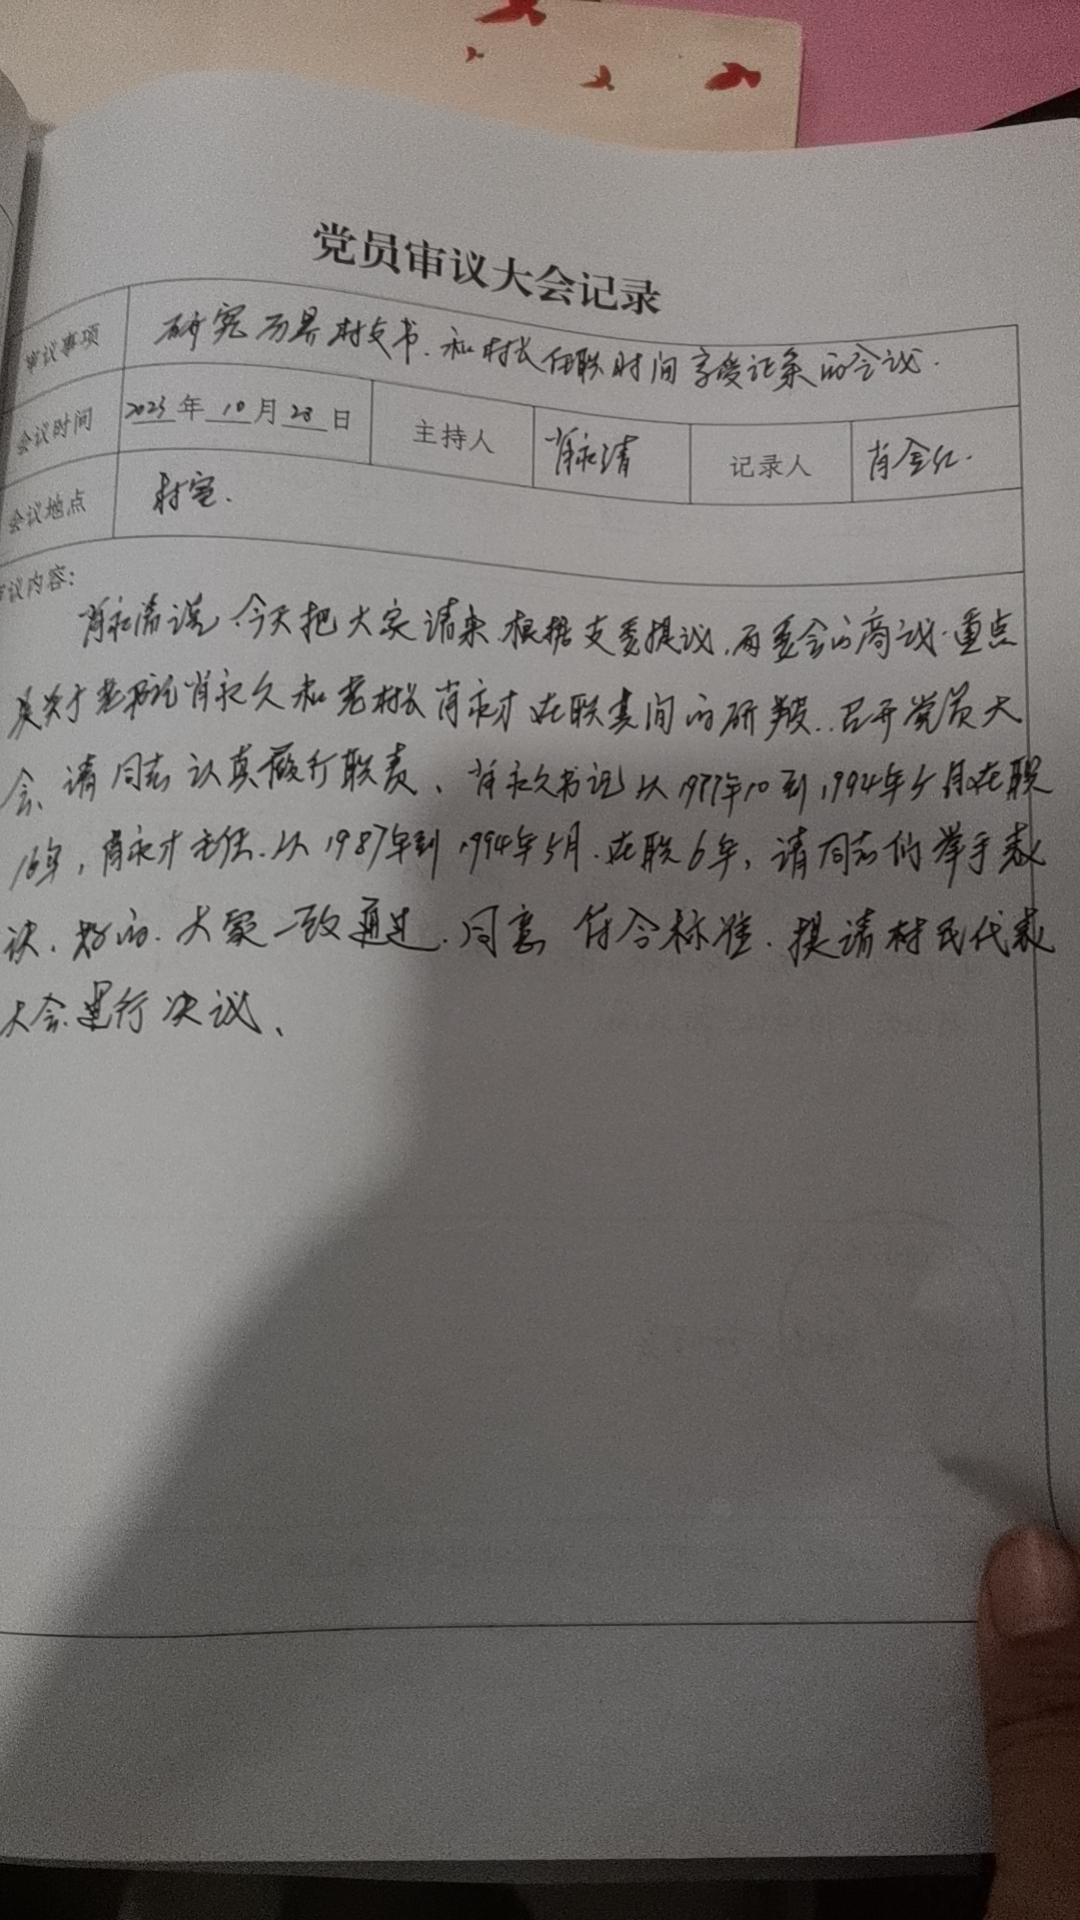 党员审议大会记录
审议事项 研究历界村支书、和村长任联时间享受证条的会议.
会议时间 2023年10月28日 主持人 肖永清 记录人 肖金红.
会议地点 村室.
审议内容:
肖永清说、今天把大家请来根据支委提议.两委会的商议.重点
是关于老书记肖永久和老村长肖永才在联其间的研..召开党员大
会、请同志认真履行联责、肖永久书记从1977年10到1994年5月在职
16年,肖永才主任.从1987年到1994年5月.在联6年,请同志们举手表
决、好的.大家一致通过.同意 符合标准.提请村民代表
大会进行决议、